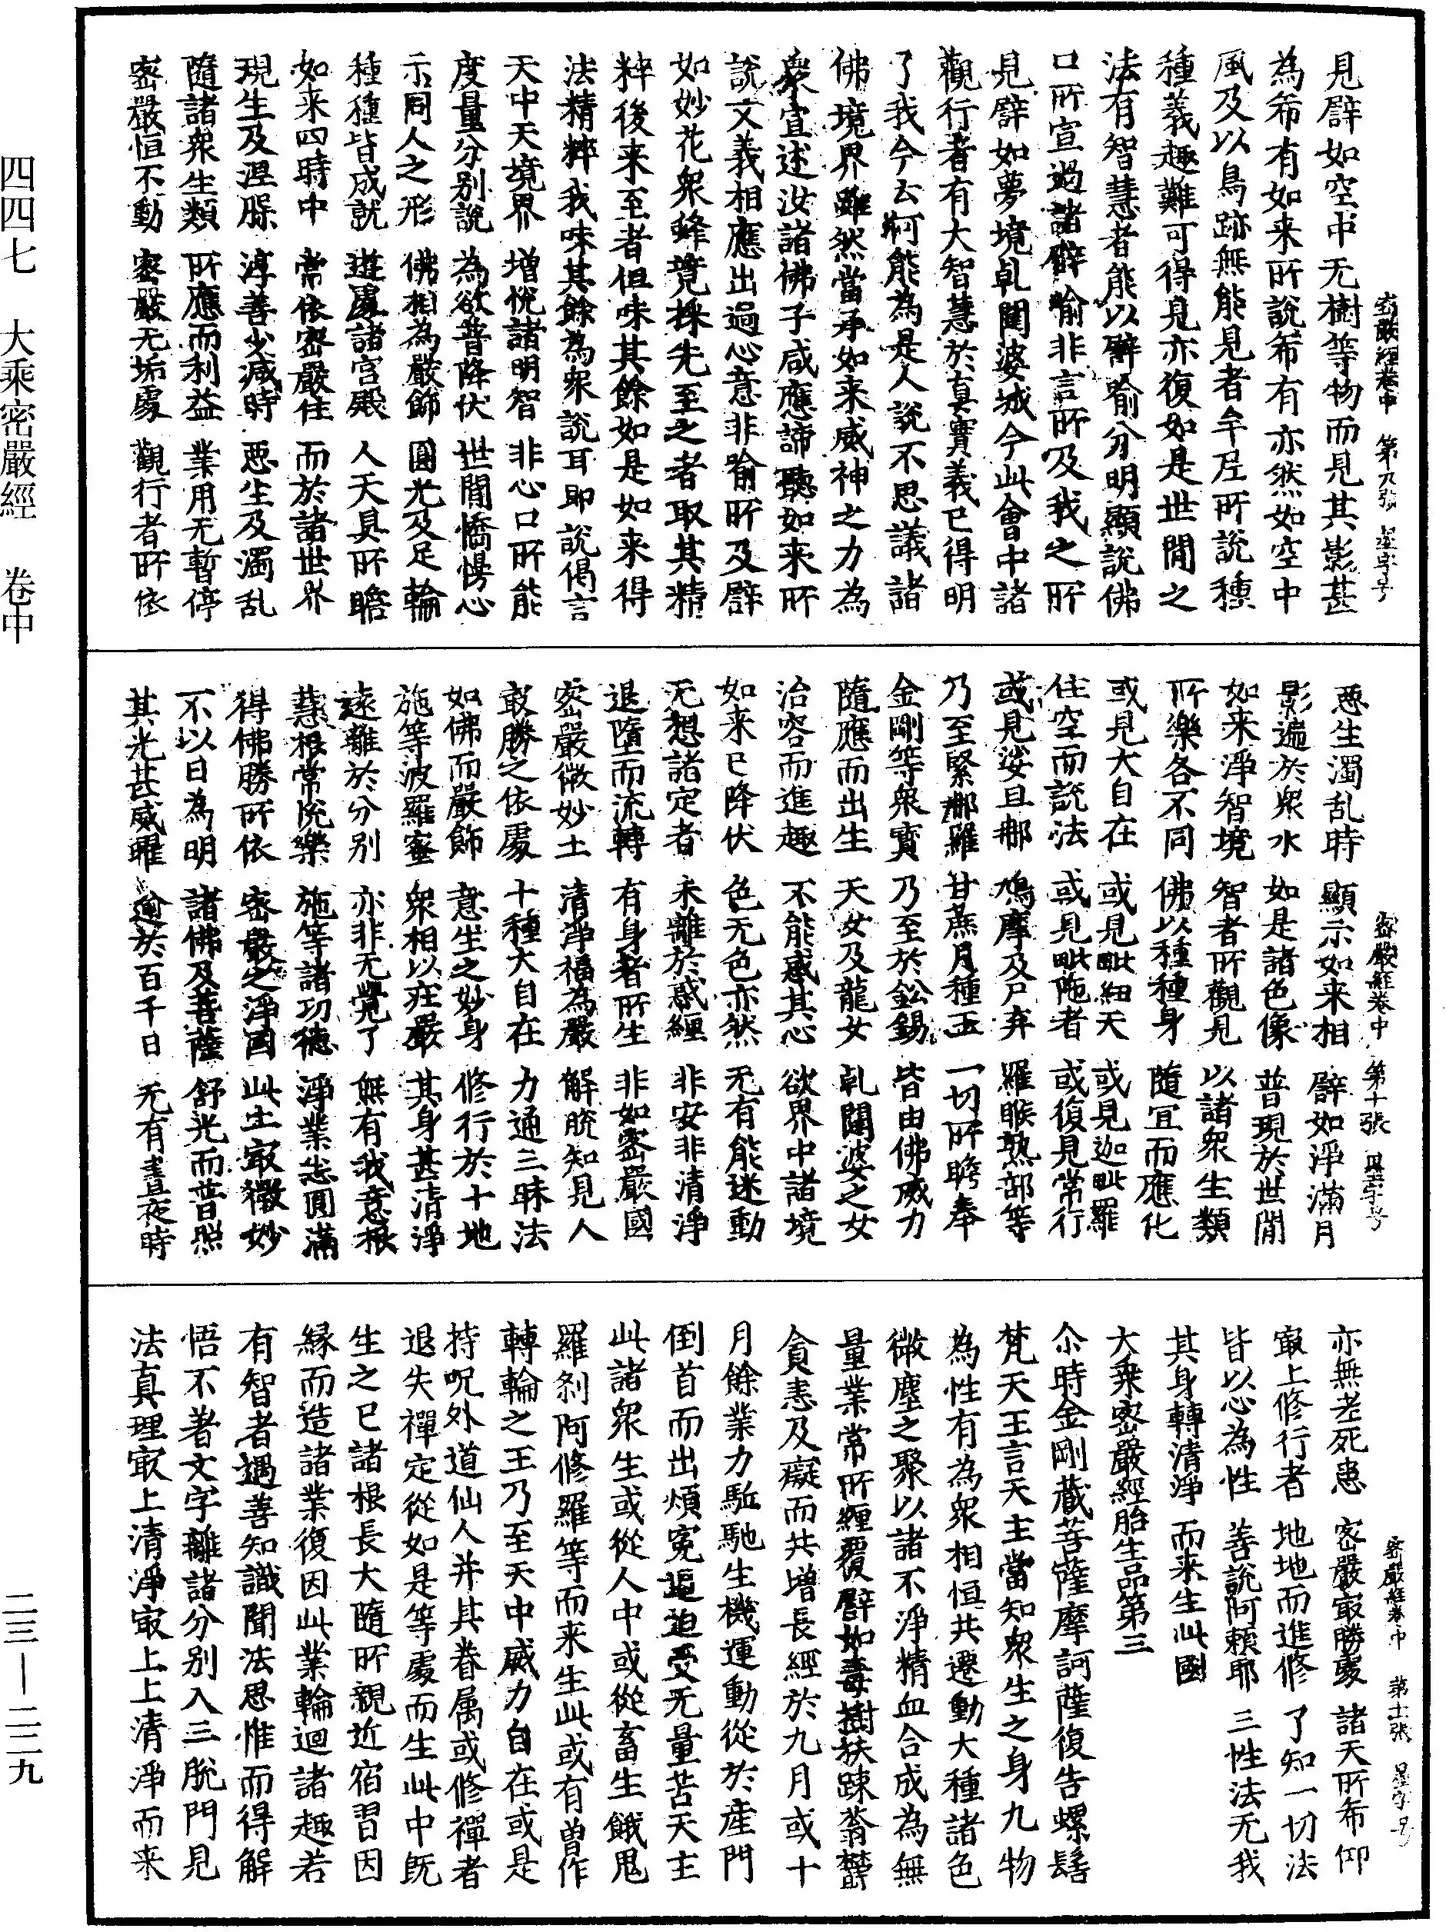 見譬如空中无樹等物而見其影甚
為希有如来所說希有亦然如空中
風及以鳥跡無能見者牟尼所說種
種義趣難可得見亦復如是世閒之
法有智慧者能以譬喻分明顯說佛
口所宣過諸譬喻非言所及我之所
見譬如夢境乹闥婆城今此會中諸
觀行者有大智慧於真實義已得明
了我今云何能為是人說不思議諸
佛境界雖然當承如来威神之力為
衆宣述汝諸佛子咸應諦聽如来所
說文義相應出過心意非喻所及譬
如妙花衆蜂竟採先至之者取其精
粹後来至者但味其餘如是如来得
法精粹我味其餘為衆說耳即說偈言
天中天境界 增悅諸明智 非心口所能
度量分別說 為欲普降伏 世閒憍慢心
示同人之形 佛相為嚴飾 圓光及足輪
種種皆成就 遊處諸宮殿 人天具所瞻
如来四時中 常依密嚴住 而於諸世界
現生及涅槃 淳善少減時 惡生及濁乱
隨諸衆生類 所應而利益 業用无暫停
密嚴恒不動 密嚴无垢處 觀行者所依
密嚴經卷中 第九張 星字号
惡生濁乱時 顯示如来相 譬如淨滿月
影遍於衆水 如是諸色像 普現於世閒
如来淨智境 智者所觀見 以諸衆生類
所樂各不同 佛以種種身 隨宜而應化
或見大自在 或見毗紐天 或見迦毗羅
住空而說法 或見毗陁者 或復見常行
或見娑且那 鳩摩及尸弃 羅睺熟部等
乃至緊那羅 甘蔗月種王 一切所瞻奉
金剛等衆寶 乃至於鈆錫 皆由佛威力
隨應而出生 天女及龍女 乹闥婆之女
治容而進趣 不能惑其心 欲界中諸境
如来已降伏 色无色亦然 无有能迷動
无想諸定者 未離於惑纏 非安非清淨
退墮而流轉 有身者所生 非如密嚴國
密嚴微妙土 清淨福為嚴 解脫知見人
㝡勝之依處 十種大自在 力通三昧法
如佛而嚴飾 意生之妙身 修行於十地
施等波羅蜜 衆相以莊嚴 其身甚清淨
遠離於分別 亦非无覺了 無有我意根
慧根常悅樂 施等諸功德 淨業悉圓滿
得佛勝所依 密嚴之淨國 此土㝡微妙
不以日為明 諸佛及菩薩 舒光而普照
其光甚威曜 逾於百千日 无有晝夜時
密嚴經卷中 第十張 星字号
亦無老死患 密嚴㝡勝處 諸天所希仰
㝡上修行者 地地而進修 了知一切法
皆以心為性 善說阿賴耶 三性法无我
其身轉清淨 而来生此國
大乘密嚴經胎生品第三
尒時金剛藏菩薩摩訶薩復告螺髻
梵天王言天主當知衆生之身九物
為性有為衆相恒共遷動大種諸色
微塵之聚以諸不淨精血合成為無
量業常所纏覆譬如毒樹扶踈蓊欝
貪恚及癡而共增長經於九月或十
月餘業力駈馳生機運動從於產門
倒首而出煩寃逼迫受无量苦天主
此諸衆生或從人中或從畜生餓鬼
羅刹阿修羅等而来生此或有曾作
轉輪之王乃至天中威力自在或是
持呪外道仙人并其眷属或修禪者
退失禪定從如是等處而生此中既
生之已諸根長大隨所親近宿習因
緣而造諸業復因此業輪迴諸趣若
有智者遇善知識聞法思惟而得解
悟不著文字離諸分別入三脫門見
法真理㝡上清淨㝡上上清淨而来
密嚴經卷中 第十一張 星字号
四四七 大乘密嚴經 卷中
二三—二二九